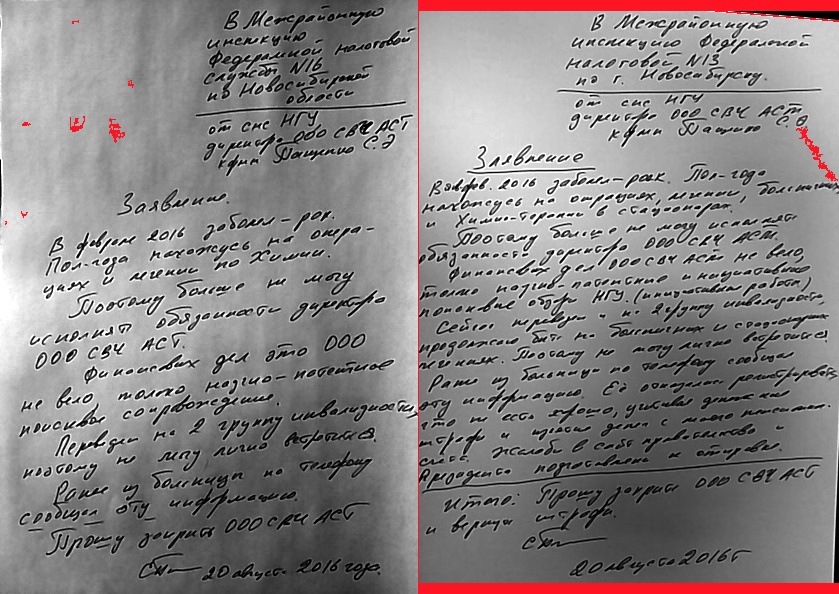 В Межрайонную
инспекцию
Федеральной налоговой
службы N16
по Новосибирской
области
от снс НГУ
директора ООО СВЧ АСТ
кфмн Пащенко С.Э
Заявление.
В феврале 2016 заболел – рак.
Пол-года нахожусь на опера-
циях и лечении по Химии.
Поэтому больше не могу
исполнять обязанности директора
ООО СВЧ АСТ.
Финансовых дел это ООО
не вело, только научно-патентное
поисковое сопровождение.
Переведен на 2 группу инвалидности,
поэтому не могу лично встретится.
Ранее из больницы по телефону
сообщал эту информацию.
Прошу закрыть ООО СВЧ АСТ
20 августа 2016 года.
В Межрайонную
инспекцию Федеральной
налоговой N13
по г. Новосибирску.
от снс НГУ
директора ООО СВЧ АСТ
кфмн Пащенко С.Э
Заявление
В фев. 2016 заболел-раком. Пол-года
нахожусь на операциях, лечении, больницы
и Химио-терапии в стационарах.
Поэтому больше не могу исполнять
обязанности директора ООО СВЧ АСТ.
Финансовых дел ООО СВЧ АСТ не вело,
только научно-патентные и инициативно
поисковые обзоры НГУ. (инициативная работа)
Сейчас переведен и на 2 группу инвалидности,
продолжаю быть на больничных и стационарных
лечениях. Поэтому не могу лично встретится.
Ранее из больницы по телефону сообщал
эту информацию. Её отказались регистрировать
что не есть хорошо, учитывая денежные
штрафы и изъятие денег с моего пенсион.
счета. Жалобы в сайт правительства и
Президента подготовлены к отправке.
Итого: Прошу закрыть ООО СВЧ АСТ
и вернуть штрафы.
20 августа 2016 г